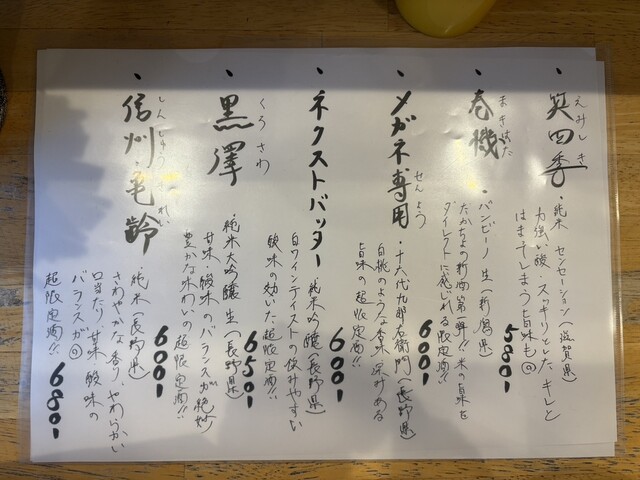 ・笑四季
えみしき
・純米 センセーション(滋賀県)
力強い酸、スッキリとした、キレと
はまってしまう旨味も◎
5801
・巻機
まきはた
・バンビーノ 生(新潟県)
たかちよの新酒第一弾!! 米の旨味を
ダイレクトに感じれる限定酒!!
6001
・メガネ専用
せんよう
・十六代九郎右衛門(長野県)
白桃のような香味 深みある
旨味の超限定酒!!
6001
・ネクストバッター
・純米吟醸(長野県)
白ワインテイストの飲みやすい
酸味の効いた超限定酒!!
6001
・黒澤
くろさわ
・純米大吟醸 生(長野県)
甘味・酸味のバランスが絶妙
豊かな味わいの超限定酒!!
6501
・信州亀齢
しんしゅうきれい
・純米(長野県)
さわやかな香り、やわらかい
口当たり、甘味、酸味の
バランスが◎
超限定酒!!
6801